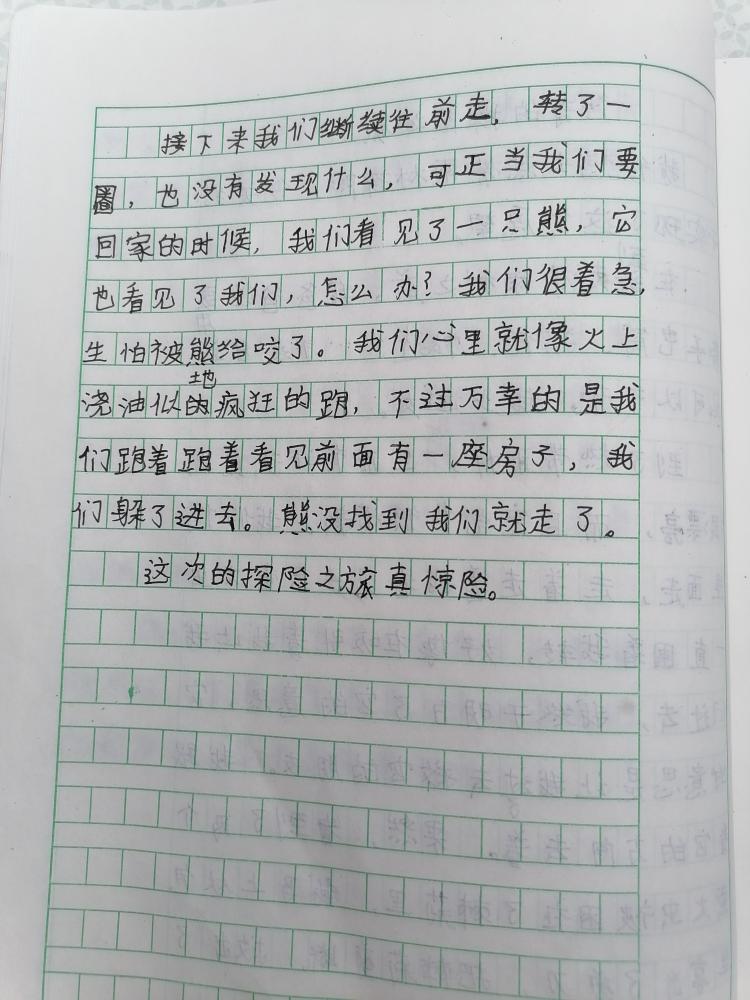 接下来我们继续往前走，转了一
圈，也没有发现什么，可正当我们要
回家的时候，我们看见了一只熊，它
也看见了我们，怎么办？我们很着急，
生怕被熊给咬了。我们心里就像火上
地
浇油似的疯狂的跑，不过万幸的是我
们跑着跑着看见前面有一座房子，我
们躲了进去。熊没找到我们就走了。
这次的探险之旅真惊险。